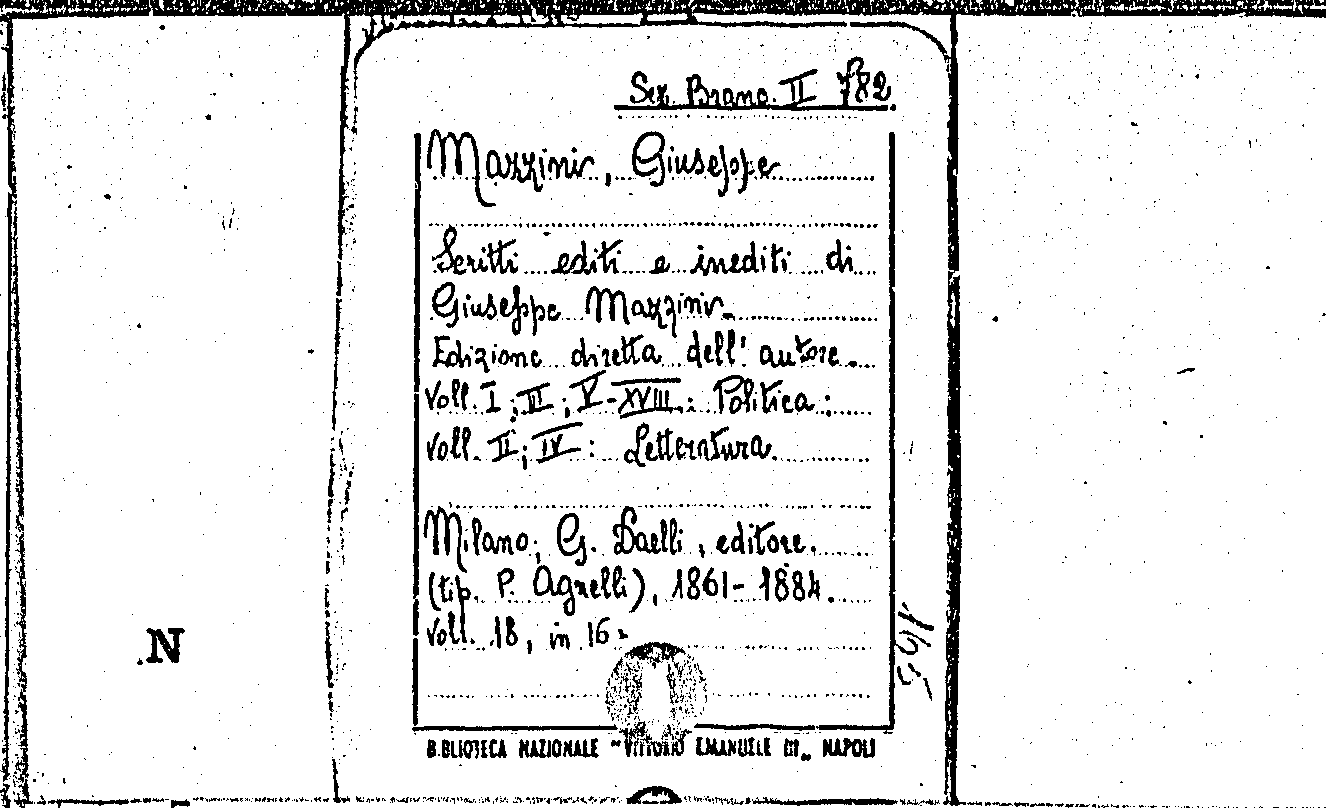 Sez. Branc. II 782
Mazzini, Giuseppe
Scritti editi e inediti di
Giuseppe Mazzini.
Edizione diretta dell'autore.
Voll. I; III; V-XVIII: Politica;
voll. II; IV: Letteratura.
Milano, G. Daelli, editore.
(tip. P. Agnelli), 1861-1884.
voll. 18, in 16.
N
BIBLIOTECA NAZIONALE "VITTORIO EMANUELE III" NAPOLI